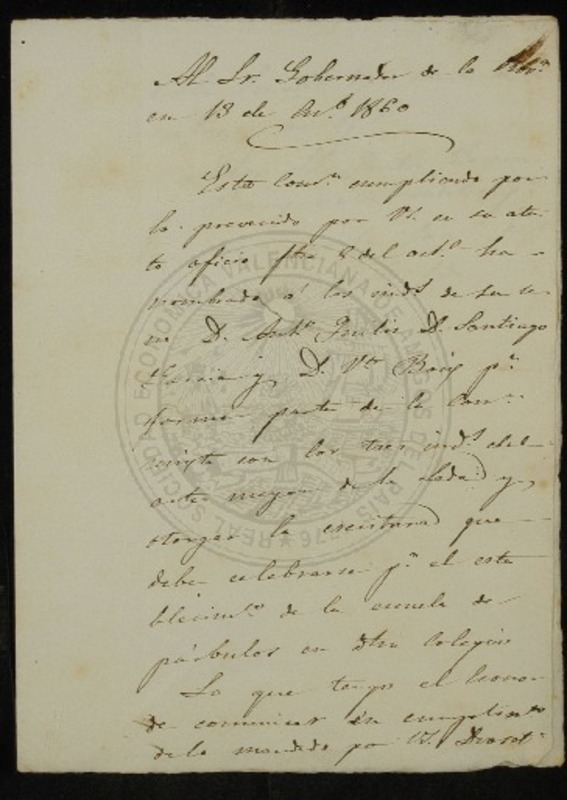 Al Sr. Gobernador de la Prov.ª
en 13 de 1860
Esta Com.n cumpliendo con
lo prevenido por V. en su aten-
to oficio fha 8 del act.l ha
nombrado á los inds. de su se-
no D. Ant.o D. Santiago
García y D. Vte Boix p.a
formar parte de la Com.n
mixta con los tres inds. del
arte mayor de la Seda y
otorgar la escritura que
debe celebrarse p.a el esta
blecim.to de la escuela de
párbulos en dho Colegio
Lo que tengo el honor
de comunicar en cumplim.to
de lo mandado por V. Dios
REAL SOCIEDAD ECONOMICA VALENCIANA AMIGOS DEL PAIS 1776